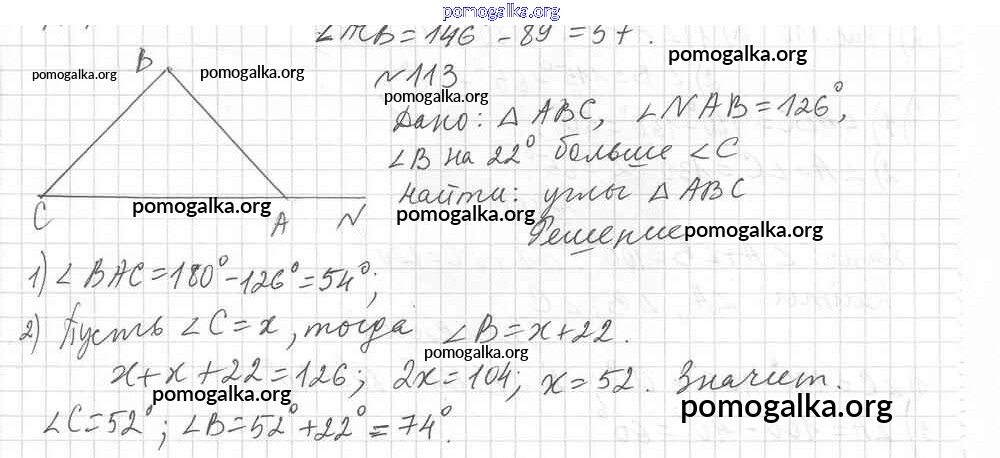 pomogalka.org
∠ACB = 146° - 89 = 57.
B
pomogalka.org
pomogalka.org
pomogalka.org
№113
pomogalka.org
Дано: △ABC, ∠NAB = 126°,
∠B на 22° больше ∠C
Найти: углы △ABC
pomogalka.org
pomogalka.org
C A N
Решение
pomogalka.org
1) ∠BAC = 180° - 126° = 54°;
2) Пусть ∠C = x, тогда ∠B = x + 22.
pomogalka.org
x + x + 22 = 126; 2x = 104; x = 52. Значит.
pomogalka.org
pomogalka.org
∠C = 52°; ∠B = 52° + 22° = 74°.